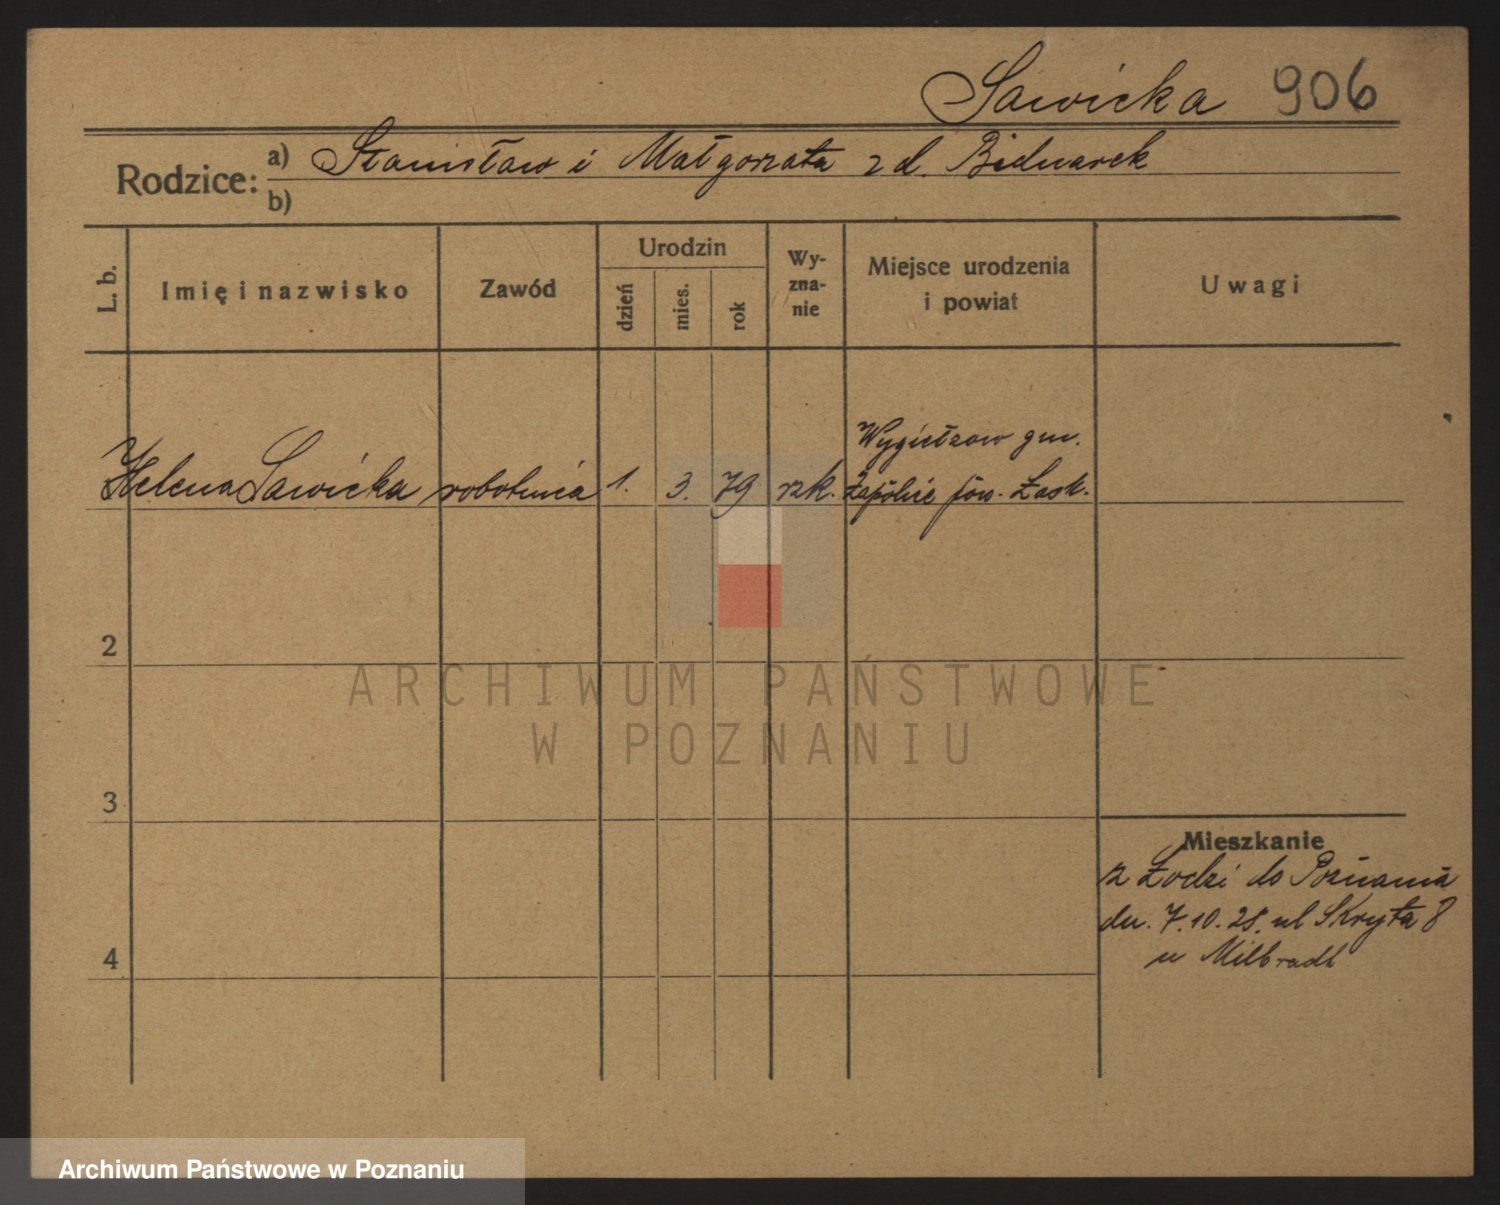 Sawicka 906
Rodzice: a) Stanisław i Małgorzata z d. Bednarek
b)
L. b. Imię i nazwisko Zawód Urodzin dzień mies. rok Wyznanie Miejsce urodzenia i powiat Uwagi
Wygiełzow gm.
Helena Sawicka robotnica 1. 3. 79 rzk. Zapolice pow. Łask.
2
3
Mieszkanie
z Łodzi do Poznania
dn. 7.10.28. ul Skryta 8
4
u Milbradt
ARCHIWUM PAŃSTWOWE
W POZNANIU
Archiwum Państwowe w Poznaniu